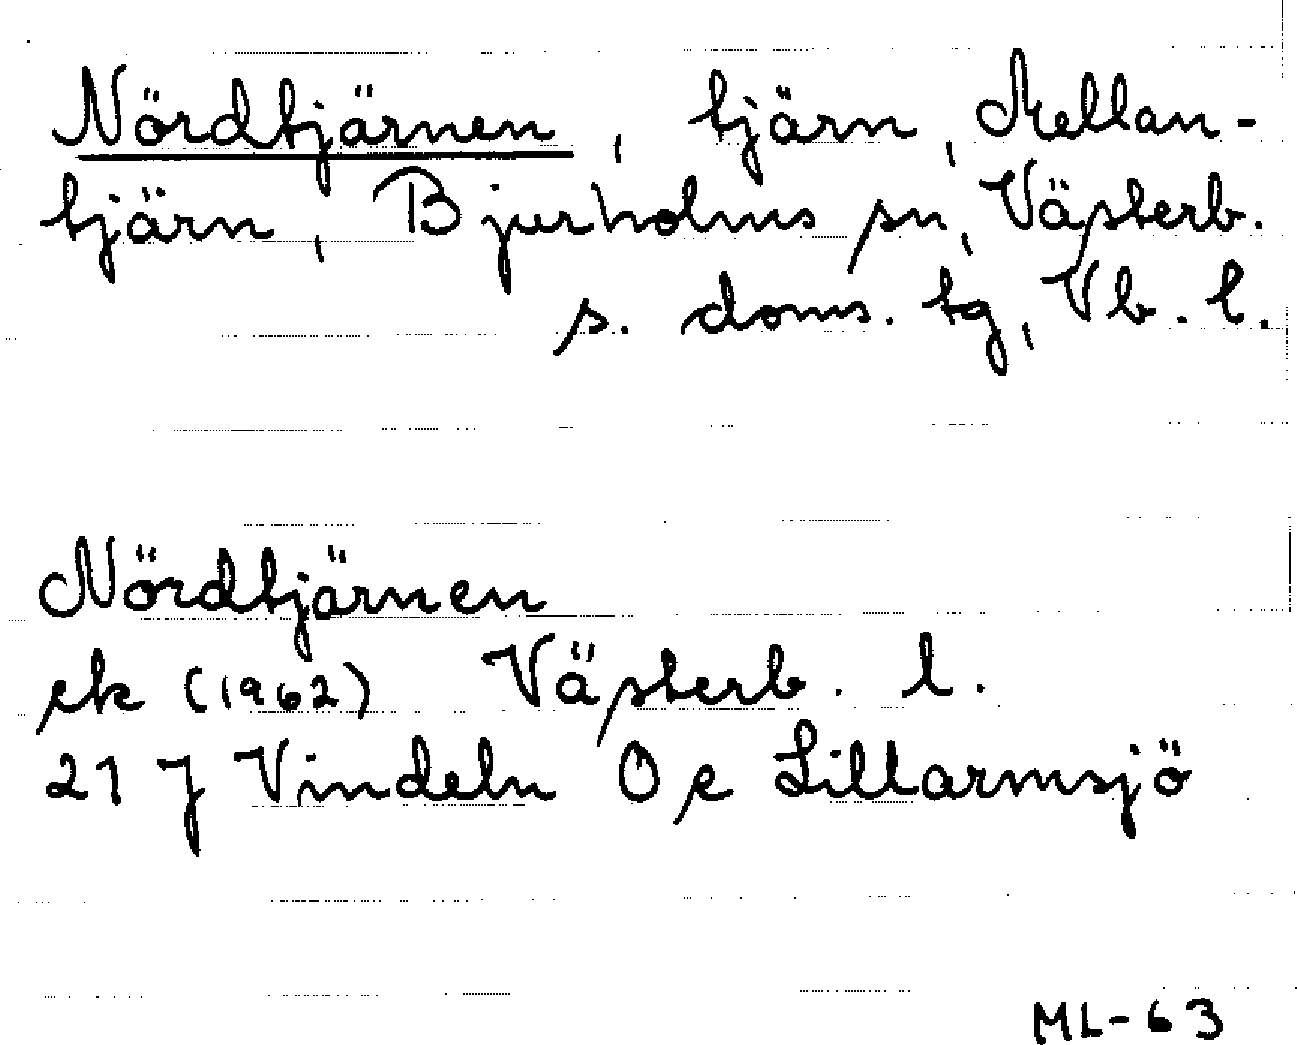 Nördtjärnen, tjärn, Mellan-
tjärn, Bjurholms sn, Västerb.
s. doms. tg, Vb. l.
Nördtjärnen
ek (1962) Västerb. l.
21 J Vindeln O e Lillarmsjö
ML-63